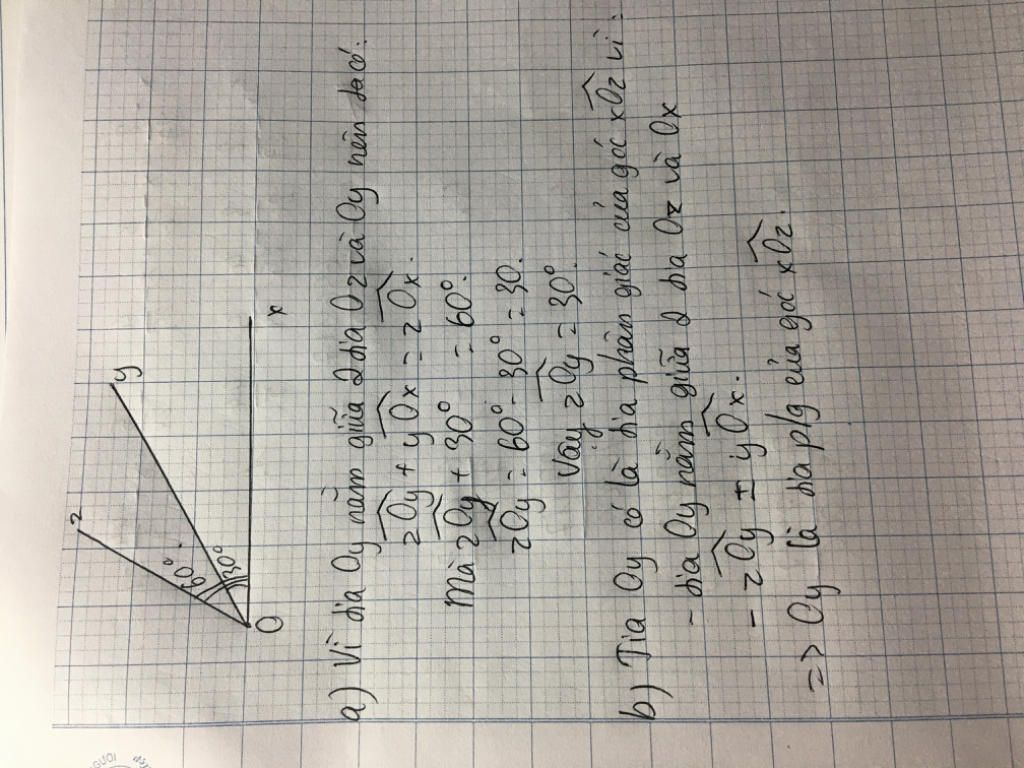 z
y
60°.
30°
O
x
a) Vì tia Oy nằm giữa 2 tia Oz và Oy nên ta có:
zOy + yOx = zOx.
Mà zOy + 30° = 60°.
zOy = 60° - 30° = 30.
Vậy zOy = 30°
b) Tia Oy có là tia phân giác của góc xOz vì:
- tia Oy nằm giữa 2 tia Oz và Ox
- zOy = yOx.
=> Oy là tia p/g của góc xOz.
GƯỜI